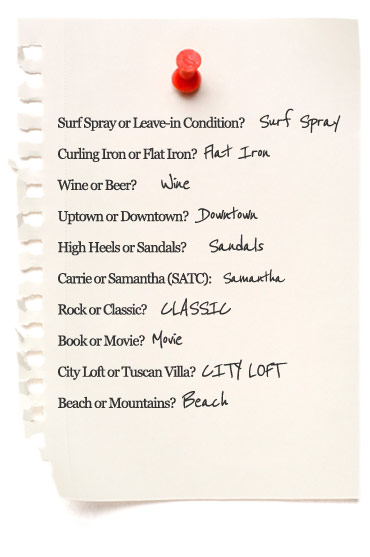 Surf Spray or Leave-in Condition? Surf Spray
Curling Iron or Flat Iron? Flat Iron
Wine or Beer? Wine
Uptown or Downtown? Downtown
High Heels or Sandals? Sandals
Carrie or Samantha (SATC): Samantha
Rock or Classic? CLASSIC
Book or Movie? Movie
City Loft or Tuscan Villa? CITY LOFT
Beach or Mountains? Beach